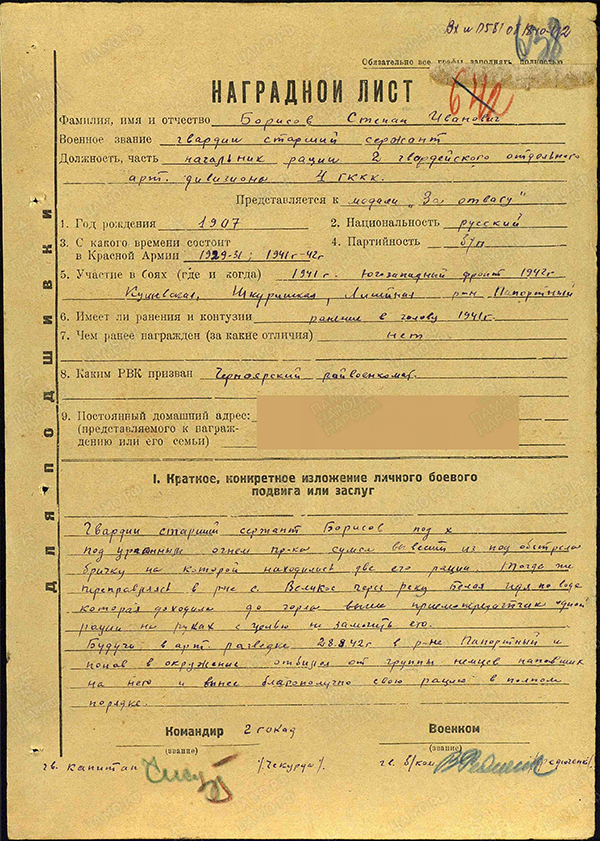 638
Обязательно все графы заполнять полностью
НАГРАДНОЙ ЛИСТ
642
Фамилия, имя и отчество Борисов Степан Иванович
Военное звание гвардии старший сержант
Должность, часть начальник рации 2 гвардейского отдельного
арт. дивизиона 4 ГККК.
Представляется к медали „За отвагу"
1. Год рождения 1907 2. Национальность русский
3. С какого времени состоит
в Красной Армии 1929-31; 1941г-42г 4. Партийность б/п
5. Участие в боях (где и когда) 1941г. Югозападный фронт 1942г
Кущевская, Шкуринская, Линейная р-он Папортный
6. Имеет ли ранения и контузии ранение в голову 1941г.
7. Чем ранее награжден (за какие отличия) нет
8. Каким РВК призван Черноярский райвоенкомат.
9. Постоянный домашний адрес:
(представляемого к награж-
дению или его семьи)
ДЛЯ ПОДШИВКИ
I. Краткое, конкретное изложение личного боевого
подвига или заслуг
Гвардии старший сержант Борисов под х
под ураганным огнем пр-ка сумел вывести из под обстрела
бричку на которой находились две его рации. Тогда же
переправляясь в р-не с. Великое через реку Белая идя по воде
которая доходила до горла вынес приемопередатчик одной
рации на руках с целью не замочить его.
Будучи в арт разведке 28.8.42г в р-не Папортный и
попав в окружение отбился от группы немцев напавших
на него и вынес благополучно свою рацию в полном
порядке.
Командир 2 гокад Военком
(звание) (звание)
гв. капитан /Чекурда/. гв. б/ком